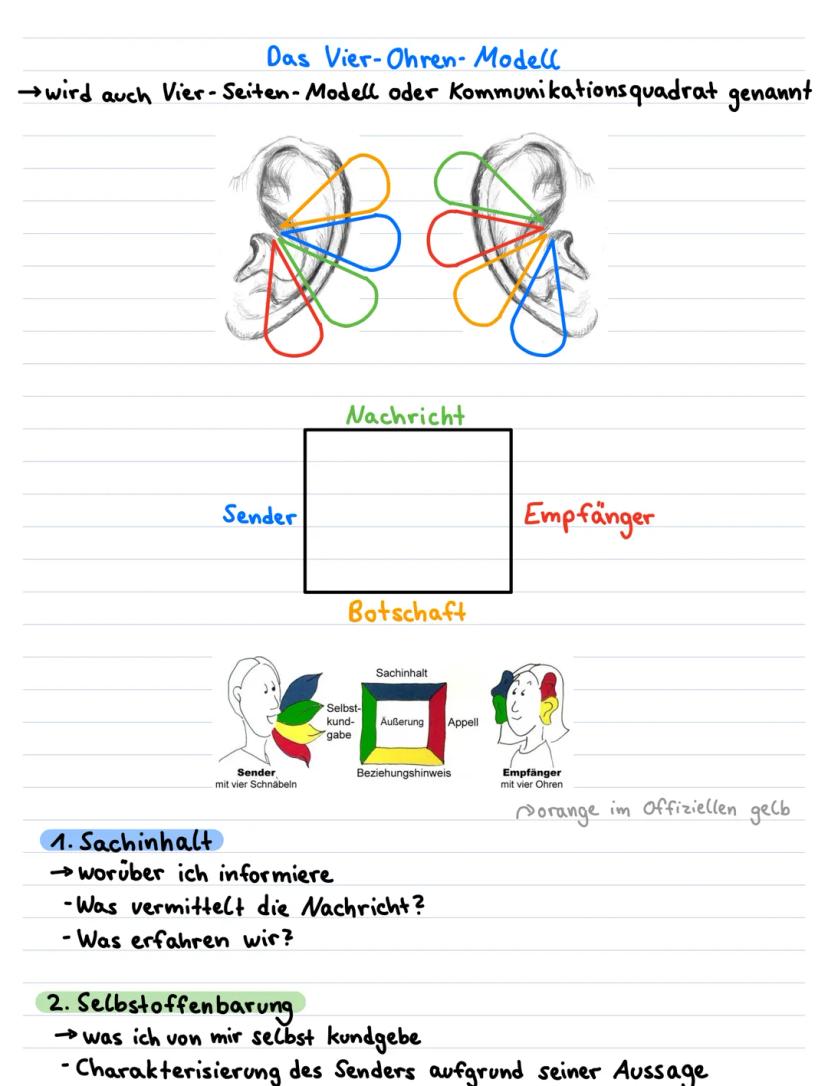 Das Vier-Ohren-Modell
→ wird auch Vier-Seiten-Modell oder Kommunikationsquadrat genannt
Nachricht
Sender
Empfänger
Botschaft
Sachinhalt
Selbst-
kund-
gabe
Äußerung
Appell
Beziehungshinweis
Sender
mit vier Schnäbeln
Empfänger
mit vier Ohren
↝ orange im Offiziellen gelb
1. Sachinhalt
→ worüber ich informiere
- Was vermittelt die Nachricht?
- Was erfahren wir?
2. Selbstoffenbarung
→ was ich von mir selbst kundgebe
- Charakterisierung des Senders aufgrund seiner Aussage